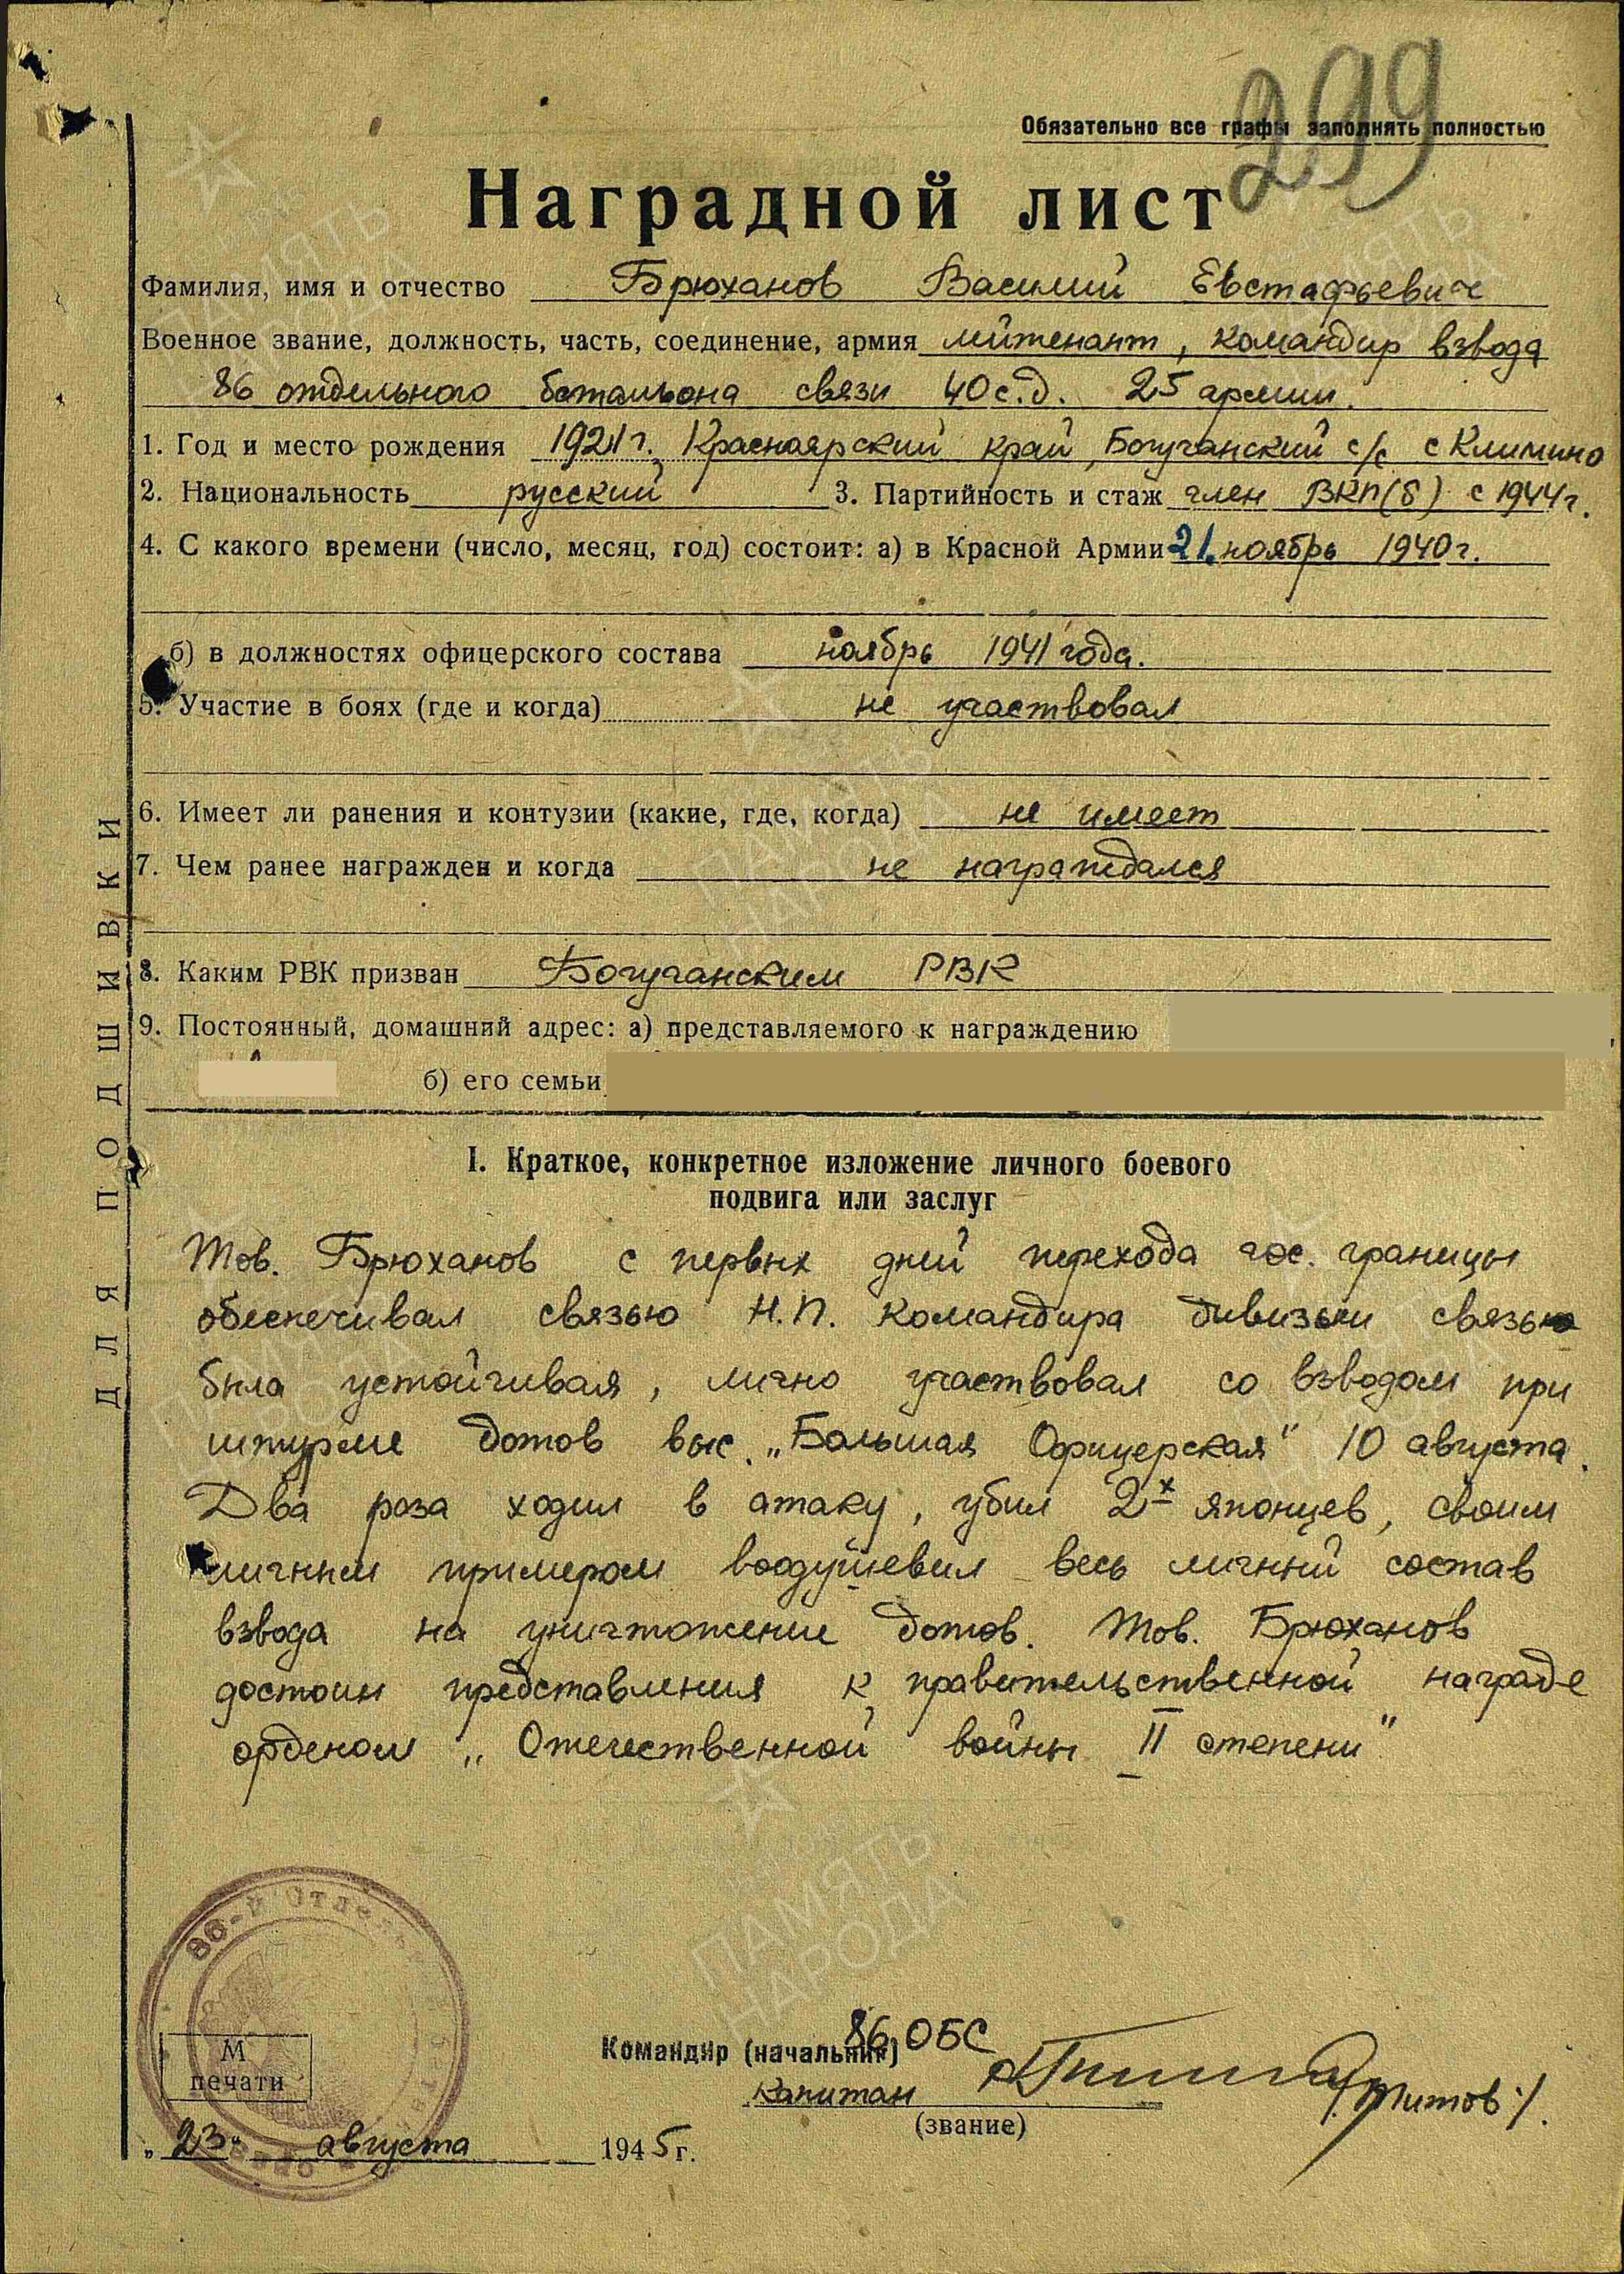 299
Обязательно все графы заполнять полностью
Наградной лист
Фамилия, имя и отчество Брюханов Василий Евстафьевич
Военное звание, должность, часть, соединение, армия лейтенант, командир взвода
86 отдельного батальона связи 40 с.д. 25 армии.
1. Год и место рождения 1921 г. Красноярский край, Богучанский с/с с Климино
2. Национальность русский 3. Партийность и стаж член ВКП(б) с 1944 г.
4. С какого времени (число, месяц, год) состоит: а) в Красной Армии 21. ноябрь 1940 г.
б) в должностях офицерского состава ноябрь 1941 года.
5. Участие в боях (где и когда) не участвовал
6. Имеет ли ранения и контузии (какие, где, когда) не имеет
7. Чем ранее награжден и когда не награждался
8. Каким РВК призван Богучанским РВК
9. Постоянный, домашний адрес: а) представляемого к награждению
б) его семьи
ДЛЯ ПОДШИВКИ
I. Краткое, конкретное изложение личного боевого
подвига или заслуг
Тов. Брюханов с первых дней перехода гос. границы
обеспечивал связью Н.П. командира дивизии связью
была устойчивая, лично участвовал со взводом при
штурме дотов выс. „Большая Офицерская" 10 августа.
Два раза ходил в атаку, убил 2х японцев, своим
личным примером воодушевил весь личный состав
взвода на уничтожение дотов. Тов. Брюханов
достоин представления к правительственной награде
орденом „Отечественной войны II степени"
86-й Отдельный
М
печати
Командир (начальник) 86 ОБС
капитан /Титов/.
(звание)
„23" августа 1945 г.
ПАМЯТЬ
НАРОДА